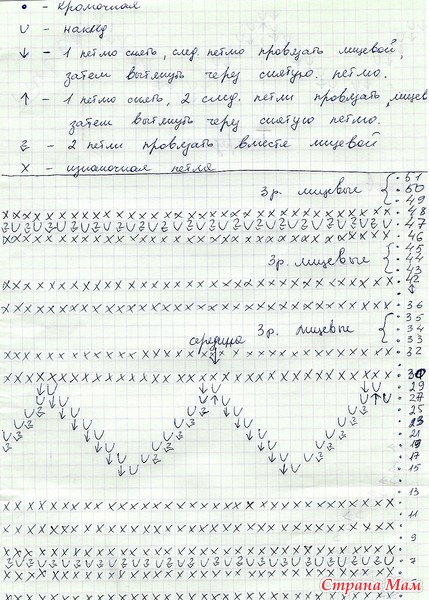 • - Кромочная
U - накид
↓ - 1 петлю снять, след. петлю провязать лицевой,
затем вытянуть через снятую петлю.
↑ - 1 петлю снять, 2 след. петли провязать лицев
затем вытянуть через снятую петлю.
- 2 петли провязать вместе лицевой
X - изнаночная петля
3 р. лицевые
51
50
49
48
47
46
3р. лицевые
45
44
43
42
36
3р. лицевые
35
34
33
середина
32
29
27
25
23
21
17
15
13
11
9
7
Страна Мам